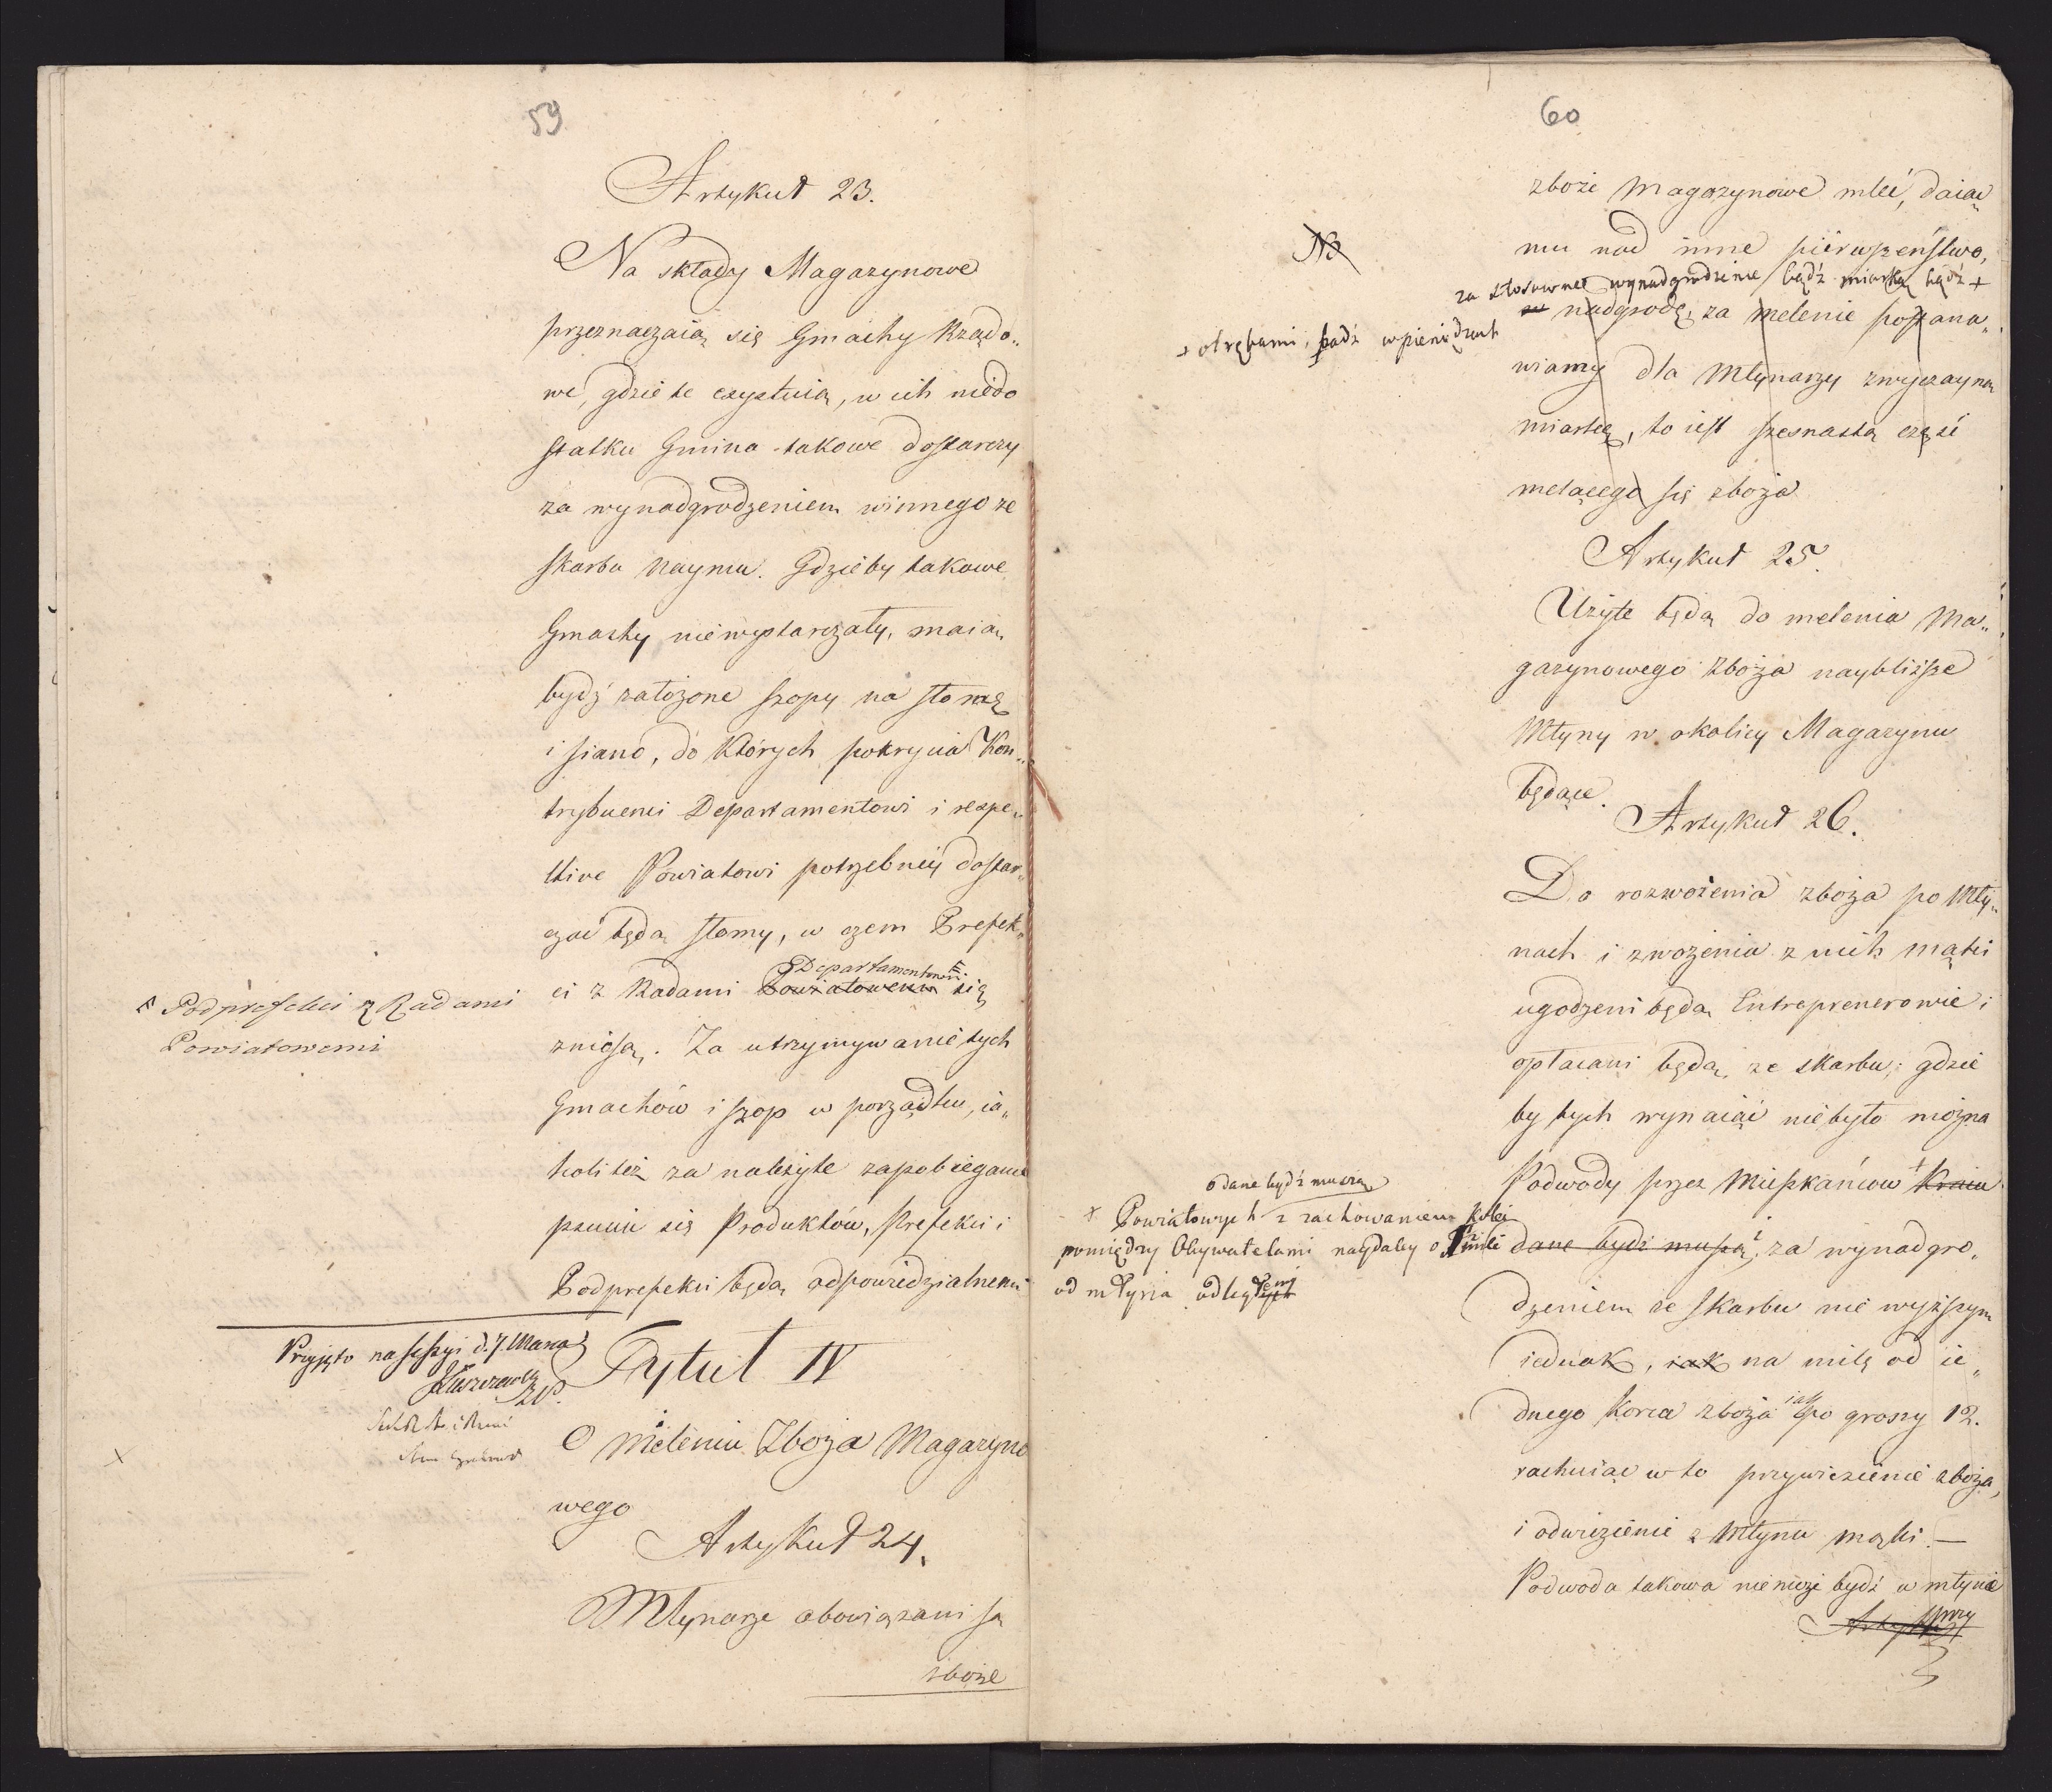 59
Artykuł 23.
Na składy Magazynowe
przeznaczaią się Gmachy Rządo„
we, gdzie te exystuią, w ich niedo
statku Gmina takowe dostarczy
za wynadgrodzeniem winnego ze
skarbu naymu. Gdzieby takowe
Gmachy niewystarczały, maią
bydź założone szopy na słomę
i siano, do których pokrycia Kon„
trybuenci Departamentowi i respe„
ctive Powiatowi potrzebney dostar„
czać będą słomy, w czem Prefek„
Departamentowemi
ci z Radami Powiatowemi się
Podprefekci z Radami
Powiatowemi
zniosą. Za utrzymywanie tych
Gmachów i szop w porządku, ia„
koli też za należyte zapobieganie
psuciu się Produktów, Prefekci i
Podprefekci będą odpowiedzialnemi
Przyięto na sessyi d. 7 Marca
Tytuł IV
O mieleniu Zboża Magazyno
wego
Artykuł 24.
Młynarze obowiązani są
zboże
60
zboże Magazynowe mleć, daiąc
mu nad inne pierwszeństwo,
Na
za stosowne wynadgrodzenie bądź miarką bądź +
+ otrębami, bądź w pieniądzach
nadgrodę za melenie postana„
wiamy dla Młynarzy zwyczayną
miarkę, to iest szesnastą część
melącego się zboża
Artykuł 25.
Użyte będą do melenia Ma„
gazynowego zboża naybliższe
Młyny w okolicy Magazynu
będące.
Artykuł 26.
Do rozwożenia zboża po Mły„
nach i zwożenia z nich mąki
ugodzeni będą Entreprenerowie i
opłacani będą ze skarbu, gdzie
by tych wynaiąć niebyło można
Podwody przez Mieszkańców + Kraiu
odane bydź muszą
+ Powiatowych z zachowaniem kolei
pomiędzy Obywatelami naydaley o 2 mile
od młyna odległemi
dane bydź muszą, za wynadgro„
dzeniem ze skarbu nie wyższym
iednak, iak na milę od ie„
dnego Korca zboża iak po groszy 12.
rachuiąc w to przywiezienie zboża,
i odwiezienie z Młynu mąki. —
Podwoda takowa niemoże bydź w młynie
przy